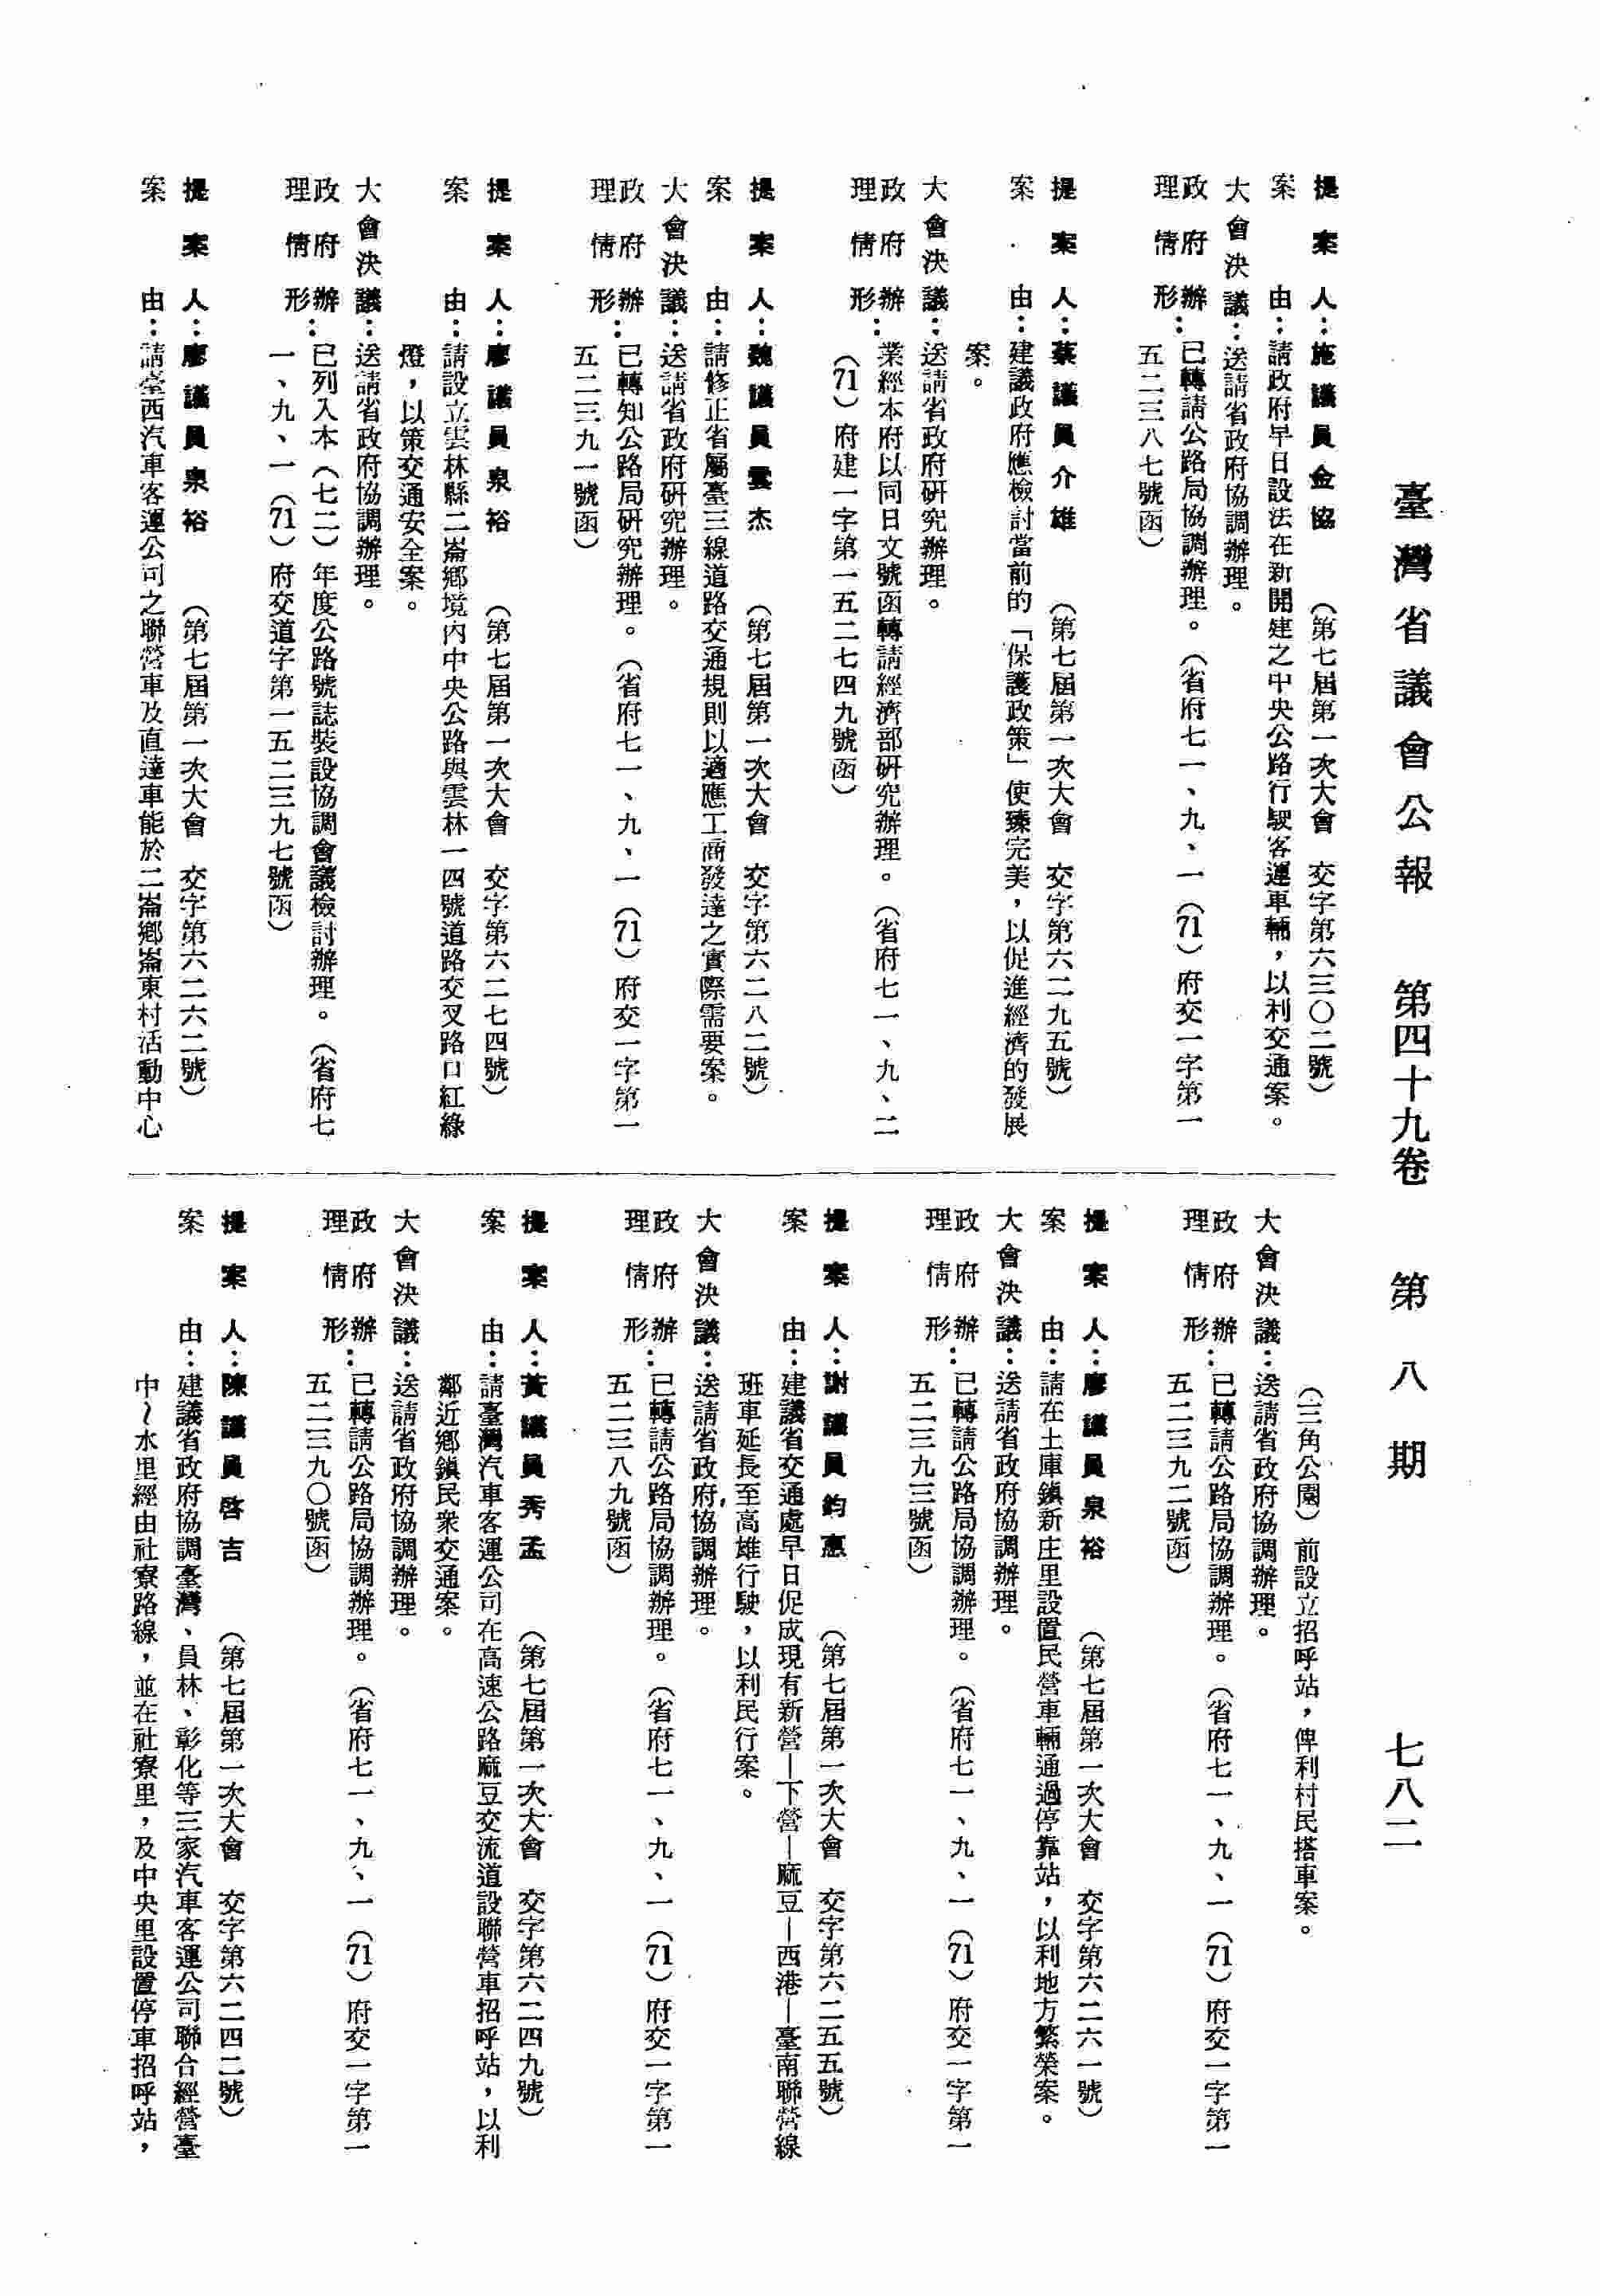 臺灣省議會公報　第四十九卷　第八期　七八二
提案人：施議員金協　（第七屆第一次大會　交字第六三〇二號）
案　由：請政府早日設法在新開建之中央公路行駛客運車輛，以利交通案。
大會決議：送請省政府協調辦理。
政府辦理情形：已轉請公路局協調辦理。（省府七一、九、一（71）府交一字第一
五二三八七號函）
提案人：蔡議員介雄　（第七屆第一次大會　交字第六二九五號）
案　由：建議政府應檢討當前的「保護政策」使臻完美，以促進經濟的發展
案。
大會決議：送請省政府研究辦理。
政府辦理情形：業經本府以同日文號函轉請經濟部研究辦理。（省府七一、九、二
（71）府建一字第一五二七四九號函）
提案人：魏議員雲杰　（第七屆第一次大會　交字第六二八二號）
案　由：請修正省屬臺三線道路交通規則以適應工商發達之實際需要案。
大會決議：送請省政府研究辦理。
政府辦理情形：已轉知公路局研究辦理。（省府七一、九、一（71）府交一字第一
五二三九一號函）
提案人：廖議員泉裕　（第七屆第一次大會　交字第六二七四號）
案　由：請設立雲林縣二崙鄉境內中央公路與雲林一四號道路交叉路口紅綠
燈，以策交通安全案。
大會決議：送請省政府協調辦理。
政府辦理情形：已列入本（七二）年度公路號誌裝設協調會議檢討辦理。（省府七
一、九、一（71）府交道字第一五二三九七號函）
提案人：廖議員泉裕　（第七屆第一次大會　交字第六二六二號）
案　由：請臺西汽車客運公司之聯營車及直達車能於二崙鄉崙東村活動中心
（三角公園）前設立招呼站，俾利村民搭車案。
大會決議：送請省政府協調辦理。
政府辦理情形：已轉請公路局協調辦理。（省府七一、九、一（71）府交一字第一
五二三九二號函）
提案人：廖議員泉裕　（第七屆第一次大會　交字第六二六一號）
案　由：請在土庫鎮新庄里設置民營車輛通過停靠站，以利地方繁榮案。
大會決議：送請省政府協調辦理。
政府辦理情形：已轉請公路局協調辦理。（省府七一、九、一（71）府交一字第一
五二三九三號函）
提案人：謝議員鈞惠　（第七屆第一次大會　交字第六二五五號）
案　由：建議省交通處早日促成現有新營—下營—麻豆—西港—臺南聯營線
班車延長至高雄行駛，以利民行案。
大會決議：送請省政府協調辦理。
政府辦理情形：已轉請公路局協調辦理。（省府七一、九、一（71）府交一字第一
五二三八九號函）
提案人：黃議員秀孟　（第七屆第一次大會　交字第六二四九號）
案　由：請臺灣汽車客運公司在高速公路麻豆交流道設聯營車招呼站，以利
鄰近鄉鎮民衆交通案。
大會決議：送請省政府協調辦理。
政府辦理情形：已轉請公路局協調辦理。（省府七一、九、一（71）府交一字第一
五二三九〇號函）
提案人：陳議員啓吉　（第七屆第一次大會　交字第六二四二號）
案　由：建議省政府協調臺灣、員林、彰化等三家汽車客運公司聯合經營臺
中～水里經由社寮路線，並在社寮里，及中央里設置停車招呼站，